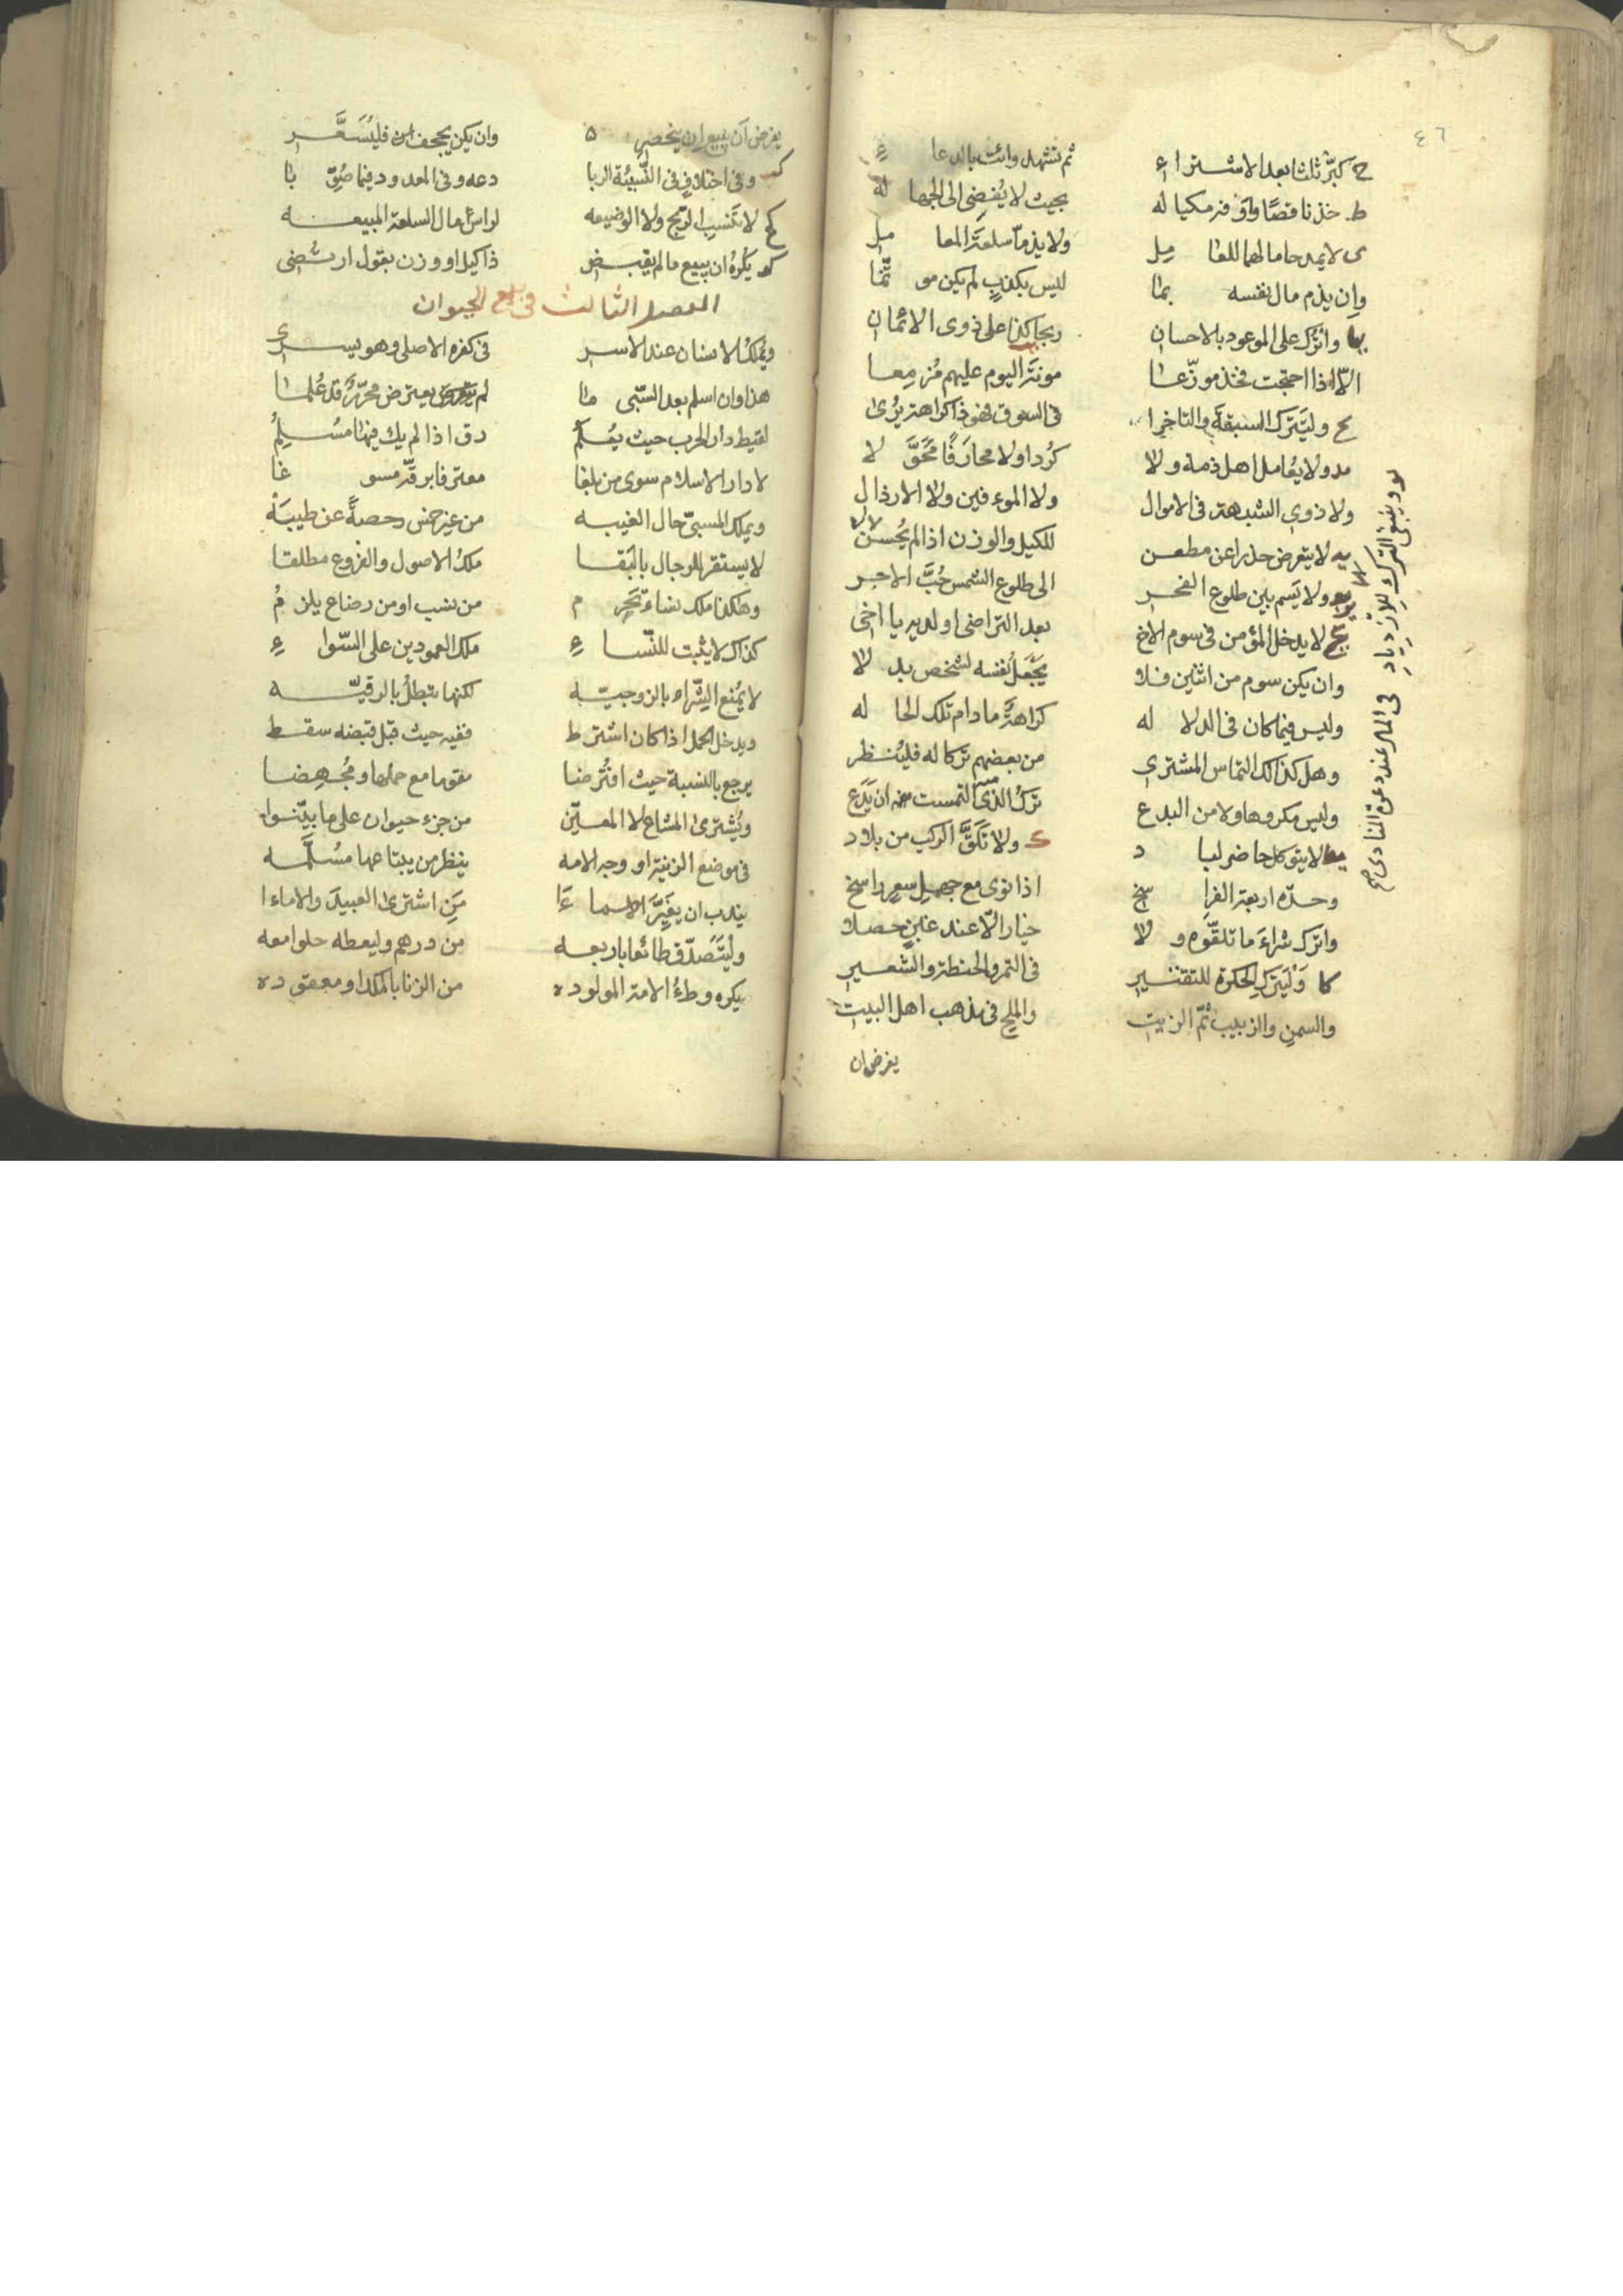 ٤٦
ح كبّر ثلثا بعد الاشتراء ثم تشهد وائت بالدعاء
ط خذ ناقصًا واوفر مكياله بحيث لا يُفضى الى الجهاله
ى لا يمدحا مالهما للقايل ولا يذمّا سلعة المعامل
وان يذم مال نفسه بما ليس بكذبٍ لم يكن مؤثّما
يا واترك على الموعود بالاحسان ربحا كذا على ذوى الايمان
الّا اذا احتجت فخذ موزّعا مونة اليوم عليهم مُزمعا
يح وليَترك السبقة والتاخرا فى السوق فهو ذا كراهة يُرى
يد ولا يُعامل اهل ذمة ولا كُردا ولا محارَفًا مُحَقَّلا
ولا ذوى الشبهة فى الاموال ولا الموءفين ولا الارذال
يه لا يتعرض حذرا عن مطعن للكيل والوزن اذا لم يُحسن
ولا يَسم بين طلوع الفجر الى طلوع الشمس حُبَّ الاجر
لا يدخل المؤمن فى سوم الاخ بعد التراضى او لديه يا اخى
وان يكن سوم من اثنين فلا يَجْعَل نفسه لشخص بدلا
وليس فيما كان فى الدلاله كراهةٌ ما دام تلك الحاله
وهل كذالك التماس المشترى من بعضهم تركا له فليُنظر
وليس مكروها ولا من البدع تركُ الذى التمست منه ان يَدَع
لا يتوكل حاضر لباد ك ولا تَلَقَّ الركب من بلاد
وحدّه اربعة الفراسخ اذا نوى مع جهل سعرٍ راسخ
واترك شراءَ ما تلقّوه ولا خيار الّا عند غبنٍ حصلا
كا وَليَترك الحكرة للتقتير فى التمر والحنطة والشعير
والسمن والزبيب ثمّ الزيت والملح فى مذهب اهل البيت
يفرض ان
ينبغى الترك للازدياد فى المال عند دعوة المنادى صح
يفرض اَن يبيع ان ينحصر وان يكن يجحف فليُسَعَّر
كب وفى اختلافٍ فى النَّسِيئة الربا دعه وفى المعدود فيما صُوِّبا
كج لا تَنْسِب الربح ولا الوضيعه لراس مال السلعة المبيعه
كد يُكرهُ ان يبيع ما لم يقبض ذا كيل او وزن بقول ارتُضى
الفصل الثالث فى بيع الحيوان
ويُملكُ الانسان عند الاسر فى كفره الاصلى وهو يسرى
هذا وان اسلم بعد السّبى ما لم يعترض محرّرٌ قد عُلما
لقيط دار الحرب حيث يُعلَمُ رق اذا لم يك فيها مُسْلِمُ
لا دار الاسلام سوى من بلغا معترفا برقّه مسوغا
ويملك المسبىّ حال الغيبه من غير خمس رخصةً عن طيبَة
لا يستقر للرجال بالبَقا ملكُ الاصول والفروع مطلقا
وهكذا ملك نساءٍ تَحرم من نسب او من رضاع يلزمُ
كذاك لا يثبت للنّساءِ ملك العمودين على السّواءِ
لا يُمنع الشراء بالزوجيّه لكنها تبطلُ بالرقيّه
ويدخل الحمل اذا كان اشترط ففيه حيث قبل قبضه سقط
يرجع بالنسبة حيث افتُرضا مقوما مع حملها ومُجهضا
ويُشترى المشاع لا المعيّن من جزء حيوان على ما بيّنوا
فى موضع الزينة او وجه الامه ينظر من يبتاعها مُسَلَّمه
يندب ان يغيِّرَ الاسماءَا مَن اشترى العبيدَ والاماءا
وليَتَصدّق طائعا باربعه من درهم وليعطه حلوا معه
يكره وطءُ الامة المولوده من الزنا بالملك او معقوده